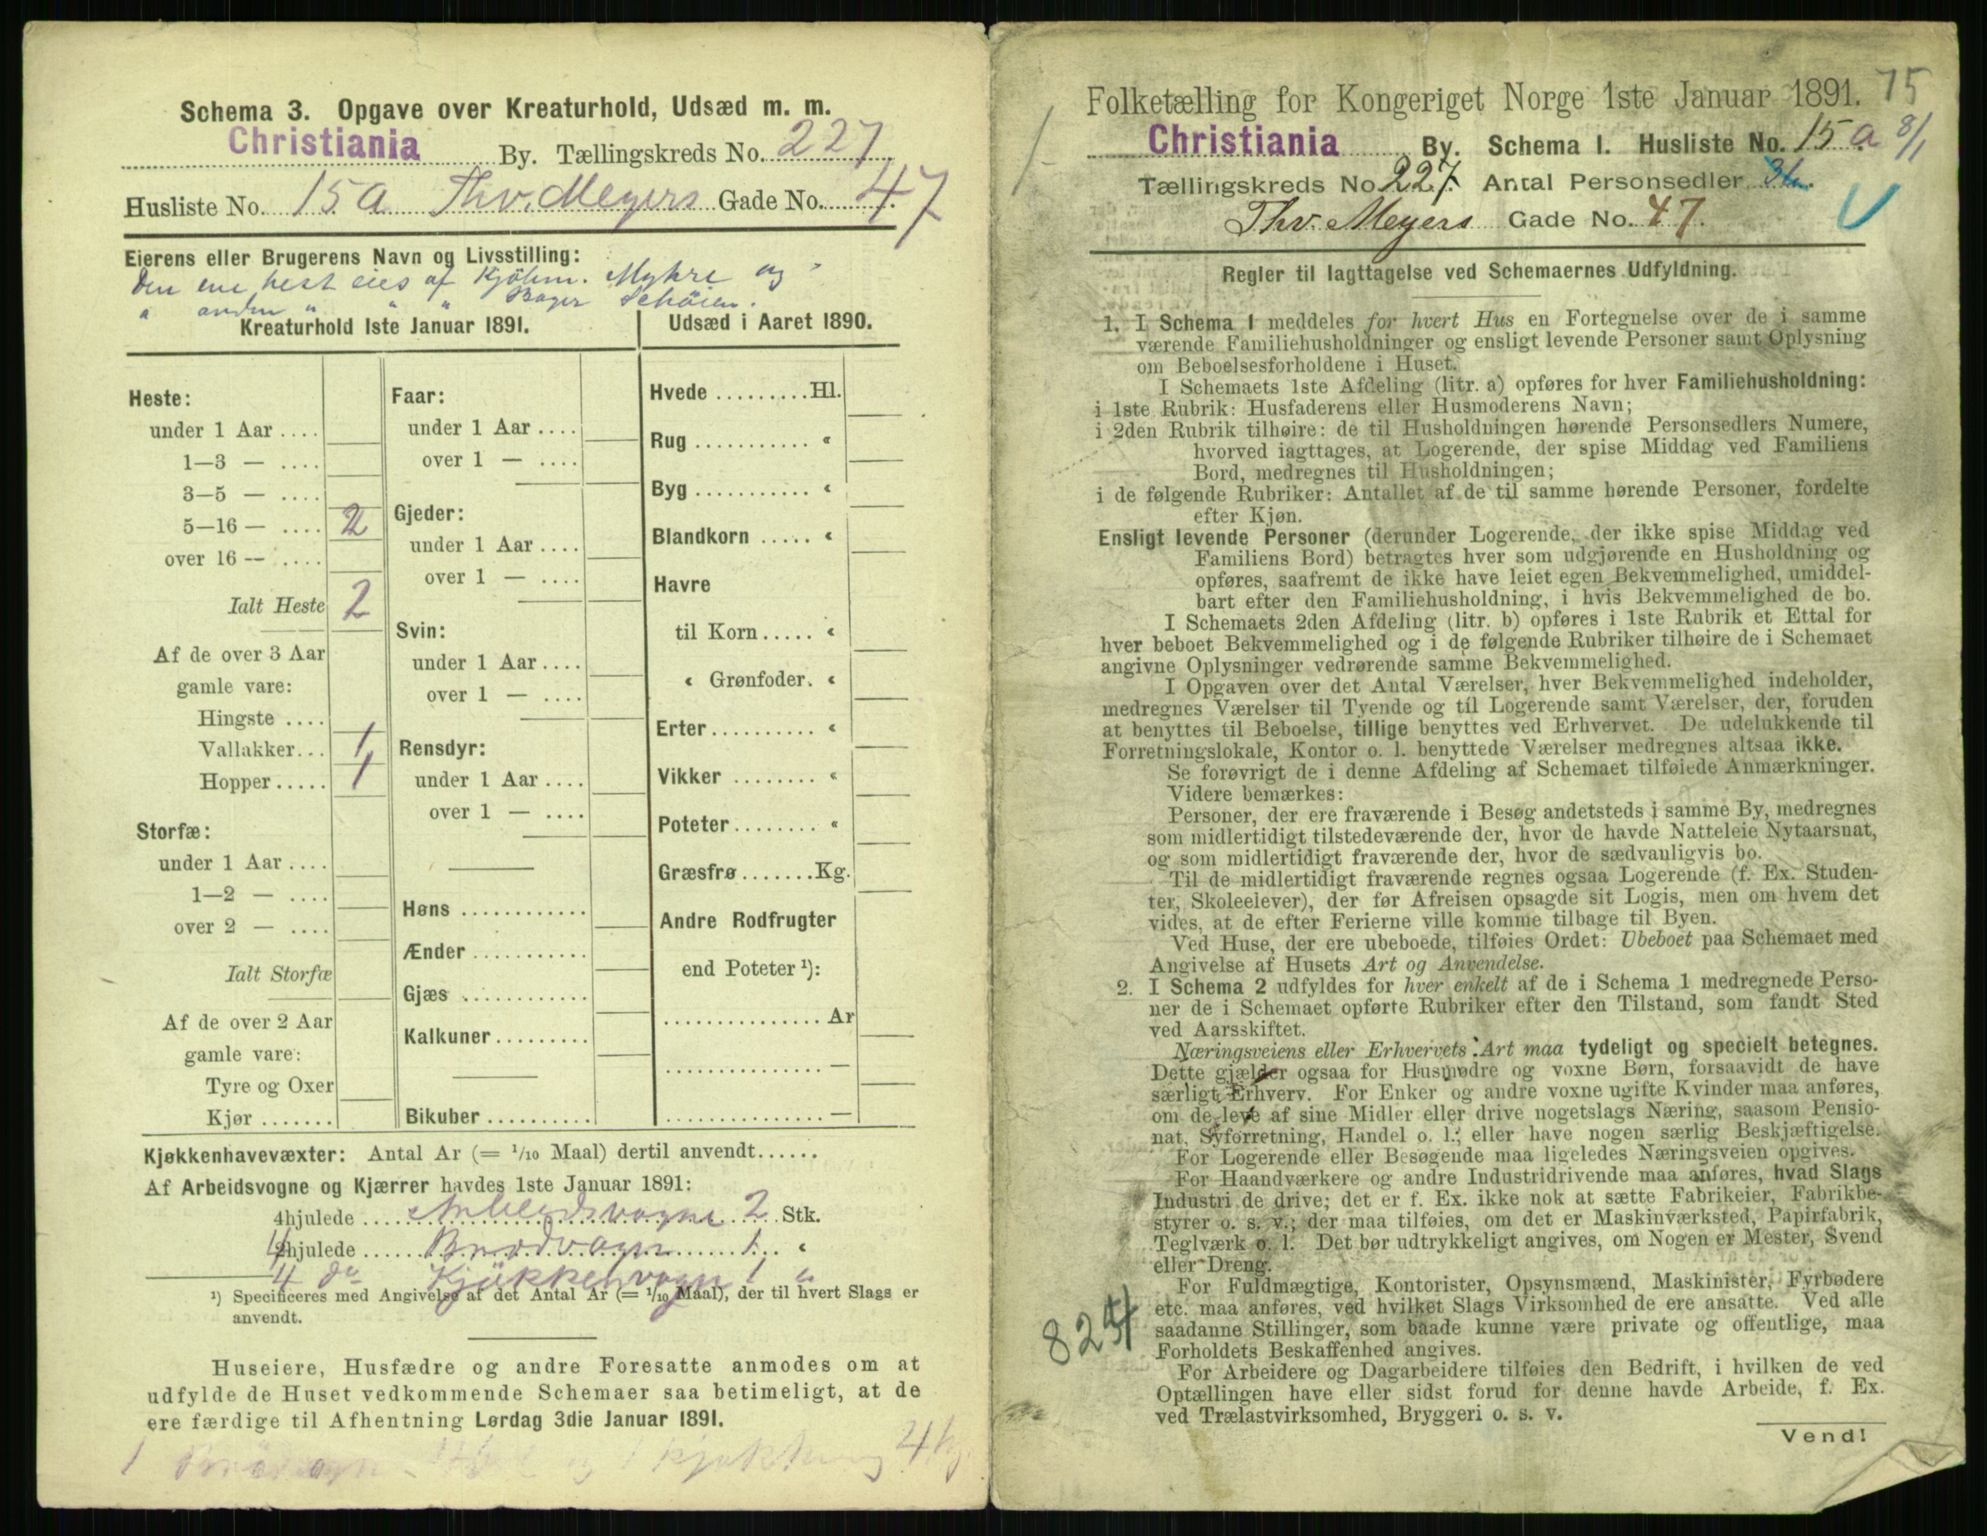 Schema 3. Opgave over Kreaturhold, Udsæd m. m.
Christiania By. Tællingskreds No. 227
Husliste No. 15a Thv. Meyers Gade No. 47
Eierens eller Brugerens Navn og Livsstilling:
Den ene hest eies af Kjöbm. Myhre og
" anden " " " Bager Schöien.
Kreaturhold 1ste Januar 1891.
Heste:
under 1 Aar ....
1—3 — ....
3—5 — ....
5—16 — .... 2
over 16 — ....
Ialt Heste 2
Af de over 3 Aar
gamle vare:
Hingste ....
Vallakker... 1
Hopper..... 1
Storfæ:
under 1 Aar ....
1—2 — ....
over 2 — ....
Ialt Storfæ
Af de over 2 Aar
gamle vare:
Tyre og Oxer
Kjør .....
Faar:
under 1 Aar ....
over 1 — ....
Gjeder:
under 1 Aar ....
over 1 — ....
Svin:
under 1 Aar ....
over 1 — ....
Rensdyr:
under 1 Aar ....
over 1 — ....
Høns ............
Ænder ...........
Gjæs ............
Kalkuner.........
Bikuber ..........
Udsæd i Aaret 1890.
Hvede .........Hl.
Rug ........... «
Byg ........... «
Blandkorn ..... «
Havre
til Korn..... «
« Grønfoder. «
Erter.......... «
Vikker ........ «
Poteter........ «
Græsfrø.......Kg.
Andre Rodfrugter
end Poteter ¹):
...............Ar
...............—
...............—
Kjøkkenhavevæxter: Antal Ar (= 1/10 Maal) dertil anvendt......
Af Arbeidsvogne og Kjærrer havdes 1ste Januar 1891:
4hjulede .... Arbeidsvogne 2 Stk.
4hjulede .... Brødvogn 1 «
4 do Kjökkenvogn 1 "
¹) Specificeres med Angivelse af det Antal Ar (= 1/10 Maal), der til hvert Slags er
anvendt.
Huseiere, Husfædre og andre Foresatte anmodes om at
udfylde de Huset vedkommende Schemaer saa betimeligt, at de
ere færdige til Afhentning Lørdag 3die Januar 1891.
1 Brödvogn
Folketælling for Kongeriget Norge 1ste Januar 1891. 75
Christiania By. Schema 1. Husliste No. 15a 8/1
Tællingskreds No. 227. Antal Personsedler
Thv. Meyers Gade No. 47.
Regler til Iagttagelse ved Schemaernes Udfyldning.
1. I Schema 1 meddeles for hvert Hus en Fortegnelse over de i samme
værende Familiehusholdninger og ensligt levende Personer samt Oplysning
om Beboelsesforholdene i Huset.
I Schemaets 1ste Afdeling (litr. a) opføres for hver Familiehusholdning:
i 1ste Rubrik: Husfaderens eller Husmoderens Navn;
i 2den Rubrik tilhøire: de til Husholdningen hørende Personsedlers Numere,
hvorved iagttages, at Logerende, der spise Middag ved Familiens
Bord, medregnes til Husholdningen;
i de følgende Rubriker: Antallet af de til samme hørende Personer, fordelte
efter Kjøn.
Ensligt levende Personer (derunder Logerende, der ikke spise Middag ved
Familiens Bord) betragtes hver som udgjørende en Husholdning og
opføres, saafremt de ikke have leiet egen Bekvemmelighed, umiddel-
bart efter den Familiehusholdning, i hvis Bekvemmelighed de bo.
I Schemaets 2den Afdeling (litr. b) opføres i 1ste Rubrik et Ettal for
hver beboet Bekvemmelighed og i de følgende Rubriker tilhøire de i Schemaet
angivne Oplysninger vedrørende samme Bekvemmelighed.
I Opgaven over det Antal Værelser, hver Bekvemmelighed indeholder,
medregnes Værelser til Tyende og til Logerende samt Værelser, der, foruden
at benyttes til Beboelse, tillige benyttes ved Erhvervet. De udelukkende til
Forretningslokale, Kontor o. l. benyttede Værelser medregnes altsaa ikke.
Se forøvrigt de i denne Afdeling af Schemaet tilføiede Anmærkninger.
Videre bemærkes:
Personer, der ere fraværende i Besøg andetsteds i samme By, medregnes
som midlertidigt tilstedeværende der, hvor de havde Natteleie Nytaarsnat,
og som midlertidigt fraværende der, hvor de sædvanligvis bo.
Til de midlertidigt fraværende regnes ogsaa Logerende (f. Ex. Studen-
ter, Skoleelever), der før Afreisen opsagde sit Logis, men om hvem det
vides, at de efter Ferierne ville komme tilbage til Byen.
Ved Huse, der ere ubeboede, tilføies Ordet: Ubeboet paa Schemaet med
Angivelse af Husets Art og Anvendelse.
2. I Schema 2 udfyldes for hver enkelt af de i Schema 1 medregnede Perso-
ner de i Schemaet opførte Rubriker efter den Tilstand, som fandt Sted
ved Aarsskiftet.
Næringsveiens eller Erhvervets Art maa tydeligt og specielt betegnes.
Dette gjælder ogsaa for Husmødre og voxne Børn, forsaavidt de have
særligt Erhverv. For Enker og andre voxne ugifte Kvinder maa anføres,
om de leve af sine Midler eller drive nogetslags Næring, saasom Pensio-
nat, Syforretning, Handel o. l.; eller have nogen særlig Beskjæftigelse.
For Logerende eller Besøgende maa ligeledes Næringsveien opgives.
For Haandværkere og andre Industridrivende maa anføres, hvad Slags
Industri de drive; det er f. Ex. ikke nok at sætte Fabrikeier, Fabrikbe-
styrer o. s. v.; der maa tilføies, om det er Maskinværksted, Papirfabrik,
Teglværk o. l. Det bør udtrykkeligt angives, om Nogen er Mester, Svend
eller Dreng.
For Fuldmægtige, Kontorister, Opsynsmænd, Maskinister, Fyrbødere
etc. maa anføres, ved hvilket Slags Virksomhed de ere ansatte. Ved alle
saadanne Stillinger, som baade kunne være private og offentlige, maa
Forholdets Beskaffenhed angives.
For Arbeidere og Dagarbeidere tilføies den Bedrift, i hvilken de ved
Optællingen have eller sidst forud for denne havde Arbeide, f. Ex.
ved Trælastvirksomhed, Bryggeri o. s. v.
Vend!